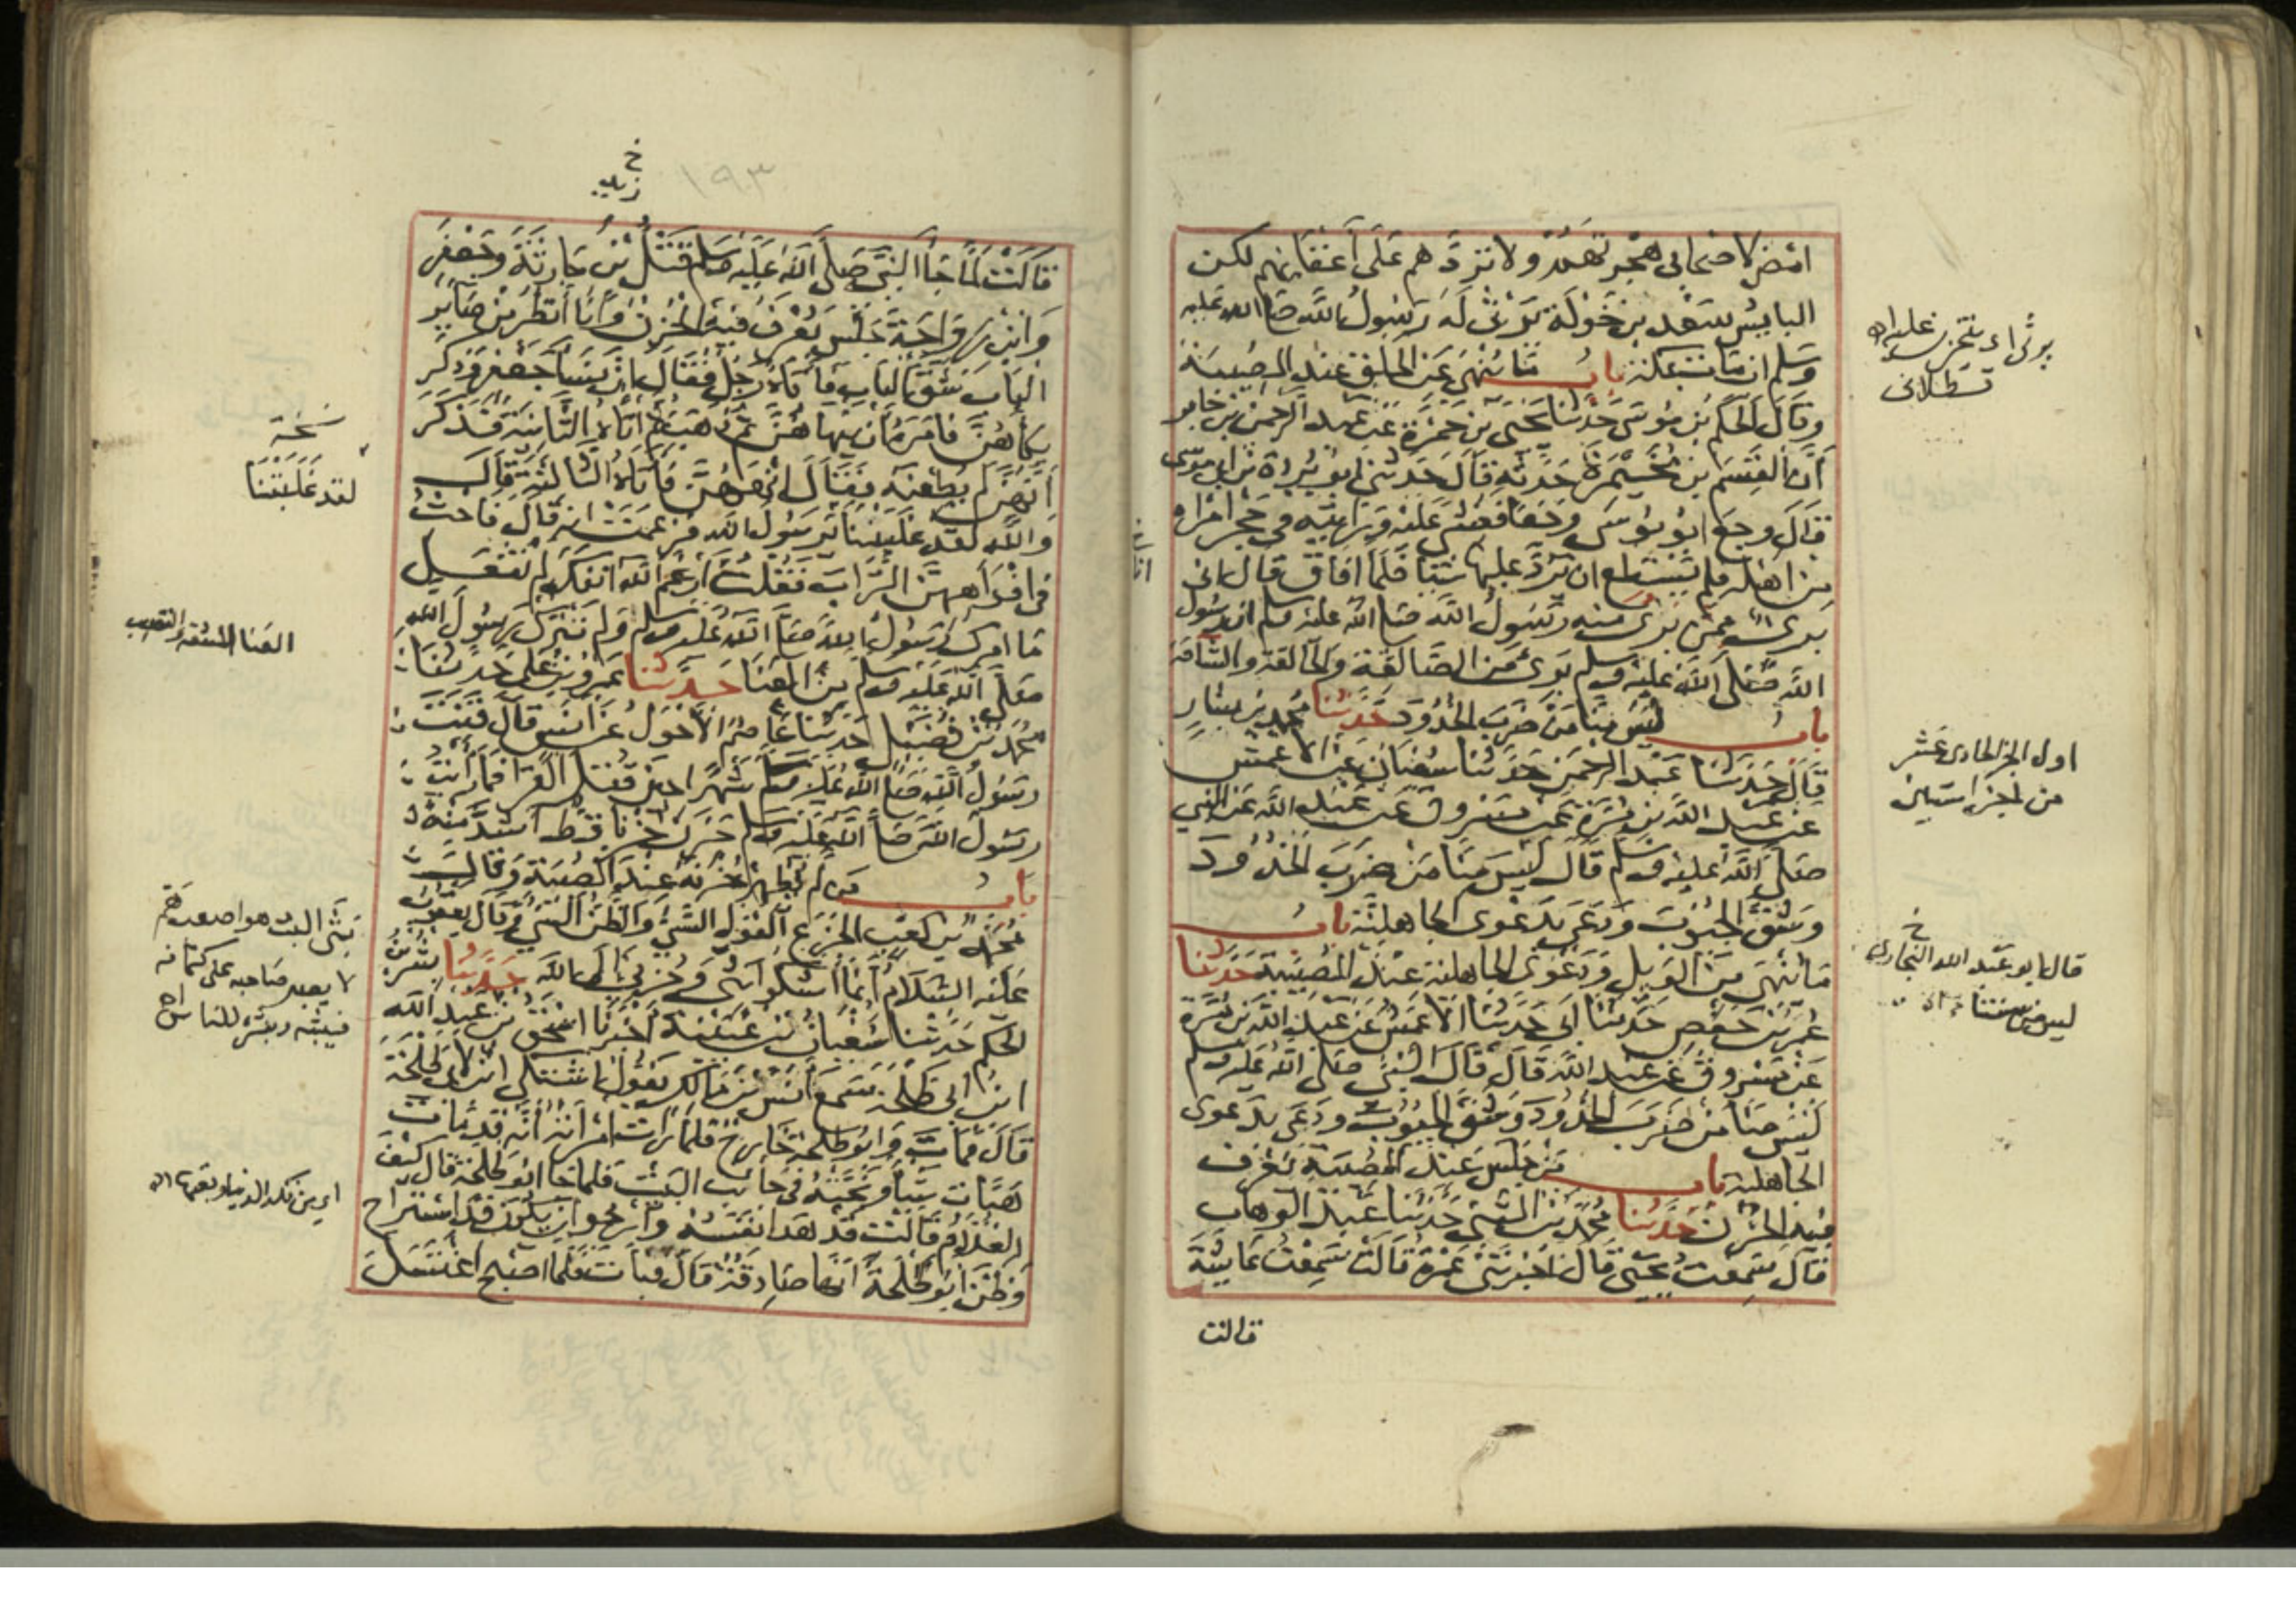 امض لاصحابى هجرتهم ولا تردهم على أعقابهم لكن
البايس سعد بن خولة يرثى له رسول الله صلى الله عليه
وسلم ان مات بمكة باب ما ينهى عن الحلق عند المصيبة
وقال الحكم بن موسى حدثنا يحيى بن حمزة عن عبد الرحمن بن جابر
أن القسم بن مخيمرة حدثه قال حدثنى ابو بردة بن ابى موسى
قال وجع ابو موسى وجعا فغشى عليه وراسه فى حجر امراة
من اهله فلم يستطع ان يرد عليها شيا فلما افاق قال انى
برى ممن برى منه رسول الله صلى الله عليه وسلم ان رسول
الله صلى الله عليه وسلم برى من الصالقة والحالقة والشاقة
باب ليس منا من ضرب الخدود حدثنا محمد بن بشار
قال حدثنا عبد الرحمن حدثنا سفيان عن الاعمش
عن عبد الله بن مرة عن مسروق عن عبد الله عن النبي
صلى الله عليه وسلم قال ليس منا من ضرب الخدود
وشق الجيوب ودعى بدعوى الجاهلية باب
ما ينهى من الويل ودعوى الجاهلية عند المصيبة حدثنا
عمر بن حفص حدثنا ابى حدثنا الاعمش عن عبد الله بن مرة
عن مسروق عن عبد الله قال قال النبى صلى الله عليه وسلم
ليس منا من ضرب الخدود وشق الجيوب ودعى بدعوى
الجاهلية باب من جلس عند المصيبة يعرف
فيه الحزن حدثنا محمد بن المثنى حدثنا عبد الوهاب
قال سمعت يحيى قال اخبرتنى عمرة قالت سمعت عايشة
قالت
يرثى اى يتحزن عليه اه
قسطلانى
اول الجز الحادى عشر
من اجزا ستين
خ
قال ابو عبد الله البخارى
ليس من سنتنا
خ
زيد
١٩٣
قالت لما جا النبى صلى الله عليه وسلم قتل بن حارثة وجعفر
وابن رواحة جلس يعرف فيه الحزن وانا أنظر من صاير
الباب شق الباب فأتاه رجل فقال ان نسا جعفر وذكر
بكاهن فامره أن ينهاهن فذهب ثم اتاه الثانية فذكر
انهن لم يطعنه فقال انههن فأتاه الثالثة قال
والله لقد غلبننا يرسول الله فزعمت انه قال فاحث
فى افواههن التراب فقلت أرغم الله انفك لم تفعل
ما امرك رسول الله صلى الله عليه وسلم ولم تترك رسول الله
صلى الله عليه وسلم من العنا حدثنا عمرو بن على حدثنا
محمد بن فضيل حدثنا عاصم الأحول عن انس قال قنت
رسول الله صلى الله عليه وسلم شهرا حين قتل القرا فما رأيت
رسول الله صلى الله عليه وسلم حزن حزنا قط اشد منه
باب من لم يظهر حزنه عند المصيبة وقال
محمد بن كعب الجزع القول السى والظن السى وقال يعقوب
عليه السلام انما أشكوا بثى وحزنى الى الله حدثنا بشر بن
الحكم حدثنا سفيان بن عيينة أخبرنا اسحق بن عبد الله
ابن ابى طلحة سمع أنس بن مالك يقول اشتكى ابن لابى طلحة
قال فمات وابو طلحة خارج فلما رات امراته أنه قد مات
هيات شيا ونحته فى جانب البيت فلما جا ابو طلحة قال كيف
الغلام قالت قد هدا نفسه وارجو ان يكون قد استراح
وظن ابو طلحة انها صادقة قال فبات فلما اصبح اغتسل
نسخة
لقد غلبتنا
العنا المشقة والتعب
بثى البث هو اصعب هم
لا يصبر صاحبه على كتمانه
فيبثه وينشره للناس اه
اى من نكد الدنيا وتعبها اه